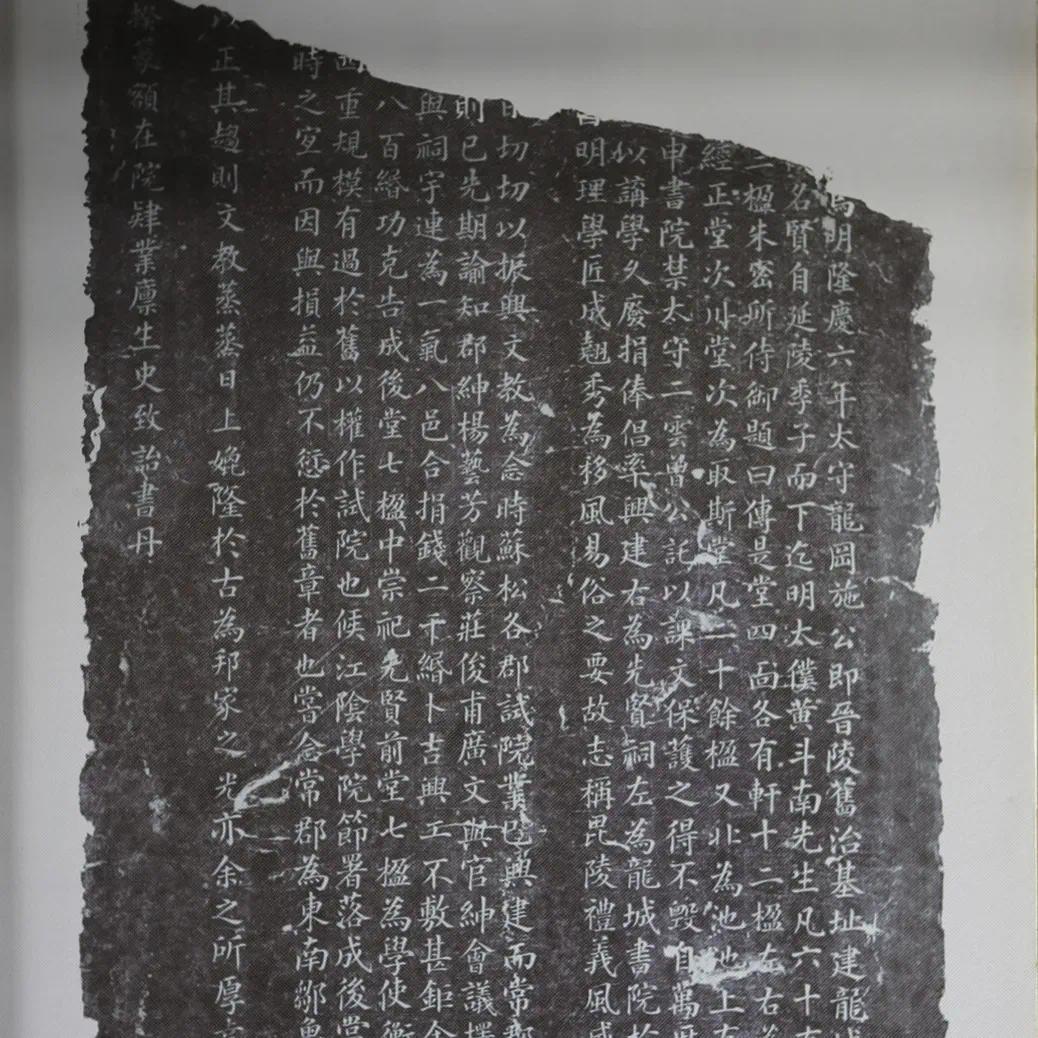 為明隆慶六年太守龍岡施公即晉陵舊治基址建龍城
名賢自延陵季子而下迄明太僕黃斗南先生凡六十
二楹朱密所侍御題曰傳是堂四面各有軒十二楹左右為
經正堂次川堂次為取斯堂凡二十餘楹又北為池池上
申書院禁太守二雲曾公託以課文保護之得不毀自萬
以講學久廢捐俸倡率興建右為先賢祠左為龍城書院於
昔明理學匠成翹秀為移風易俗之要故志稱毘陵禮義風
日切切以振興文教為念時蘇松各郡試院業已興建而常郡
則已先期諭知郡紳楊藝芳觀察莊俊甫廣文與官紳會議擇
與祠宇連為一氣八邑合捐錢二千緡卜吉興工不敷甚鉅余
八百緡功克告成後堂七楹中崇祀先賢前堂七楹為學使衡
西重規模有過於舊以權作試院也候江陰學院節署落成後
時之宜而因與損益仍不愆於舊章者也嘗念常郡為東南鄒魯
以正其趨則文教蒸蒸日上媲隆於古為邦家之光亦余之所厚
篆額在院肄業廩生史致詒書丹